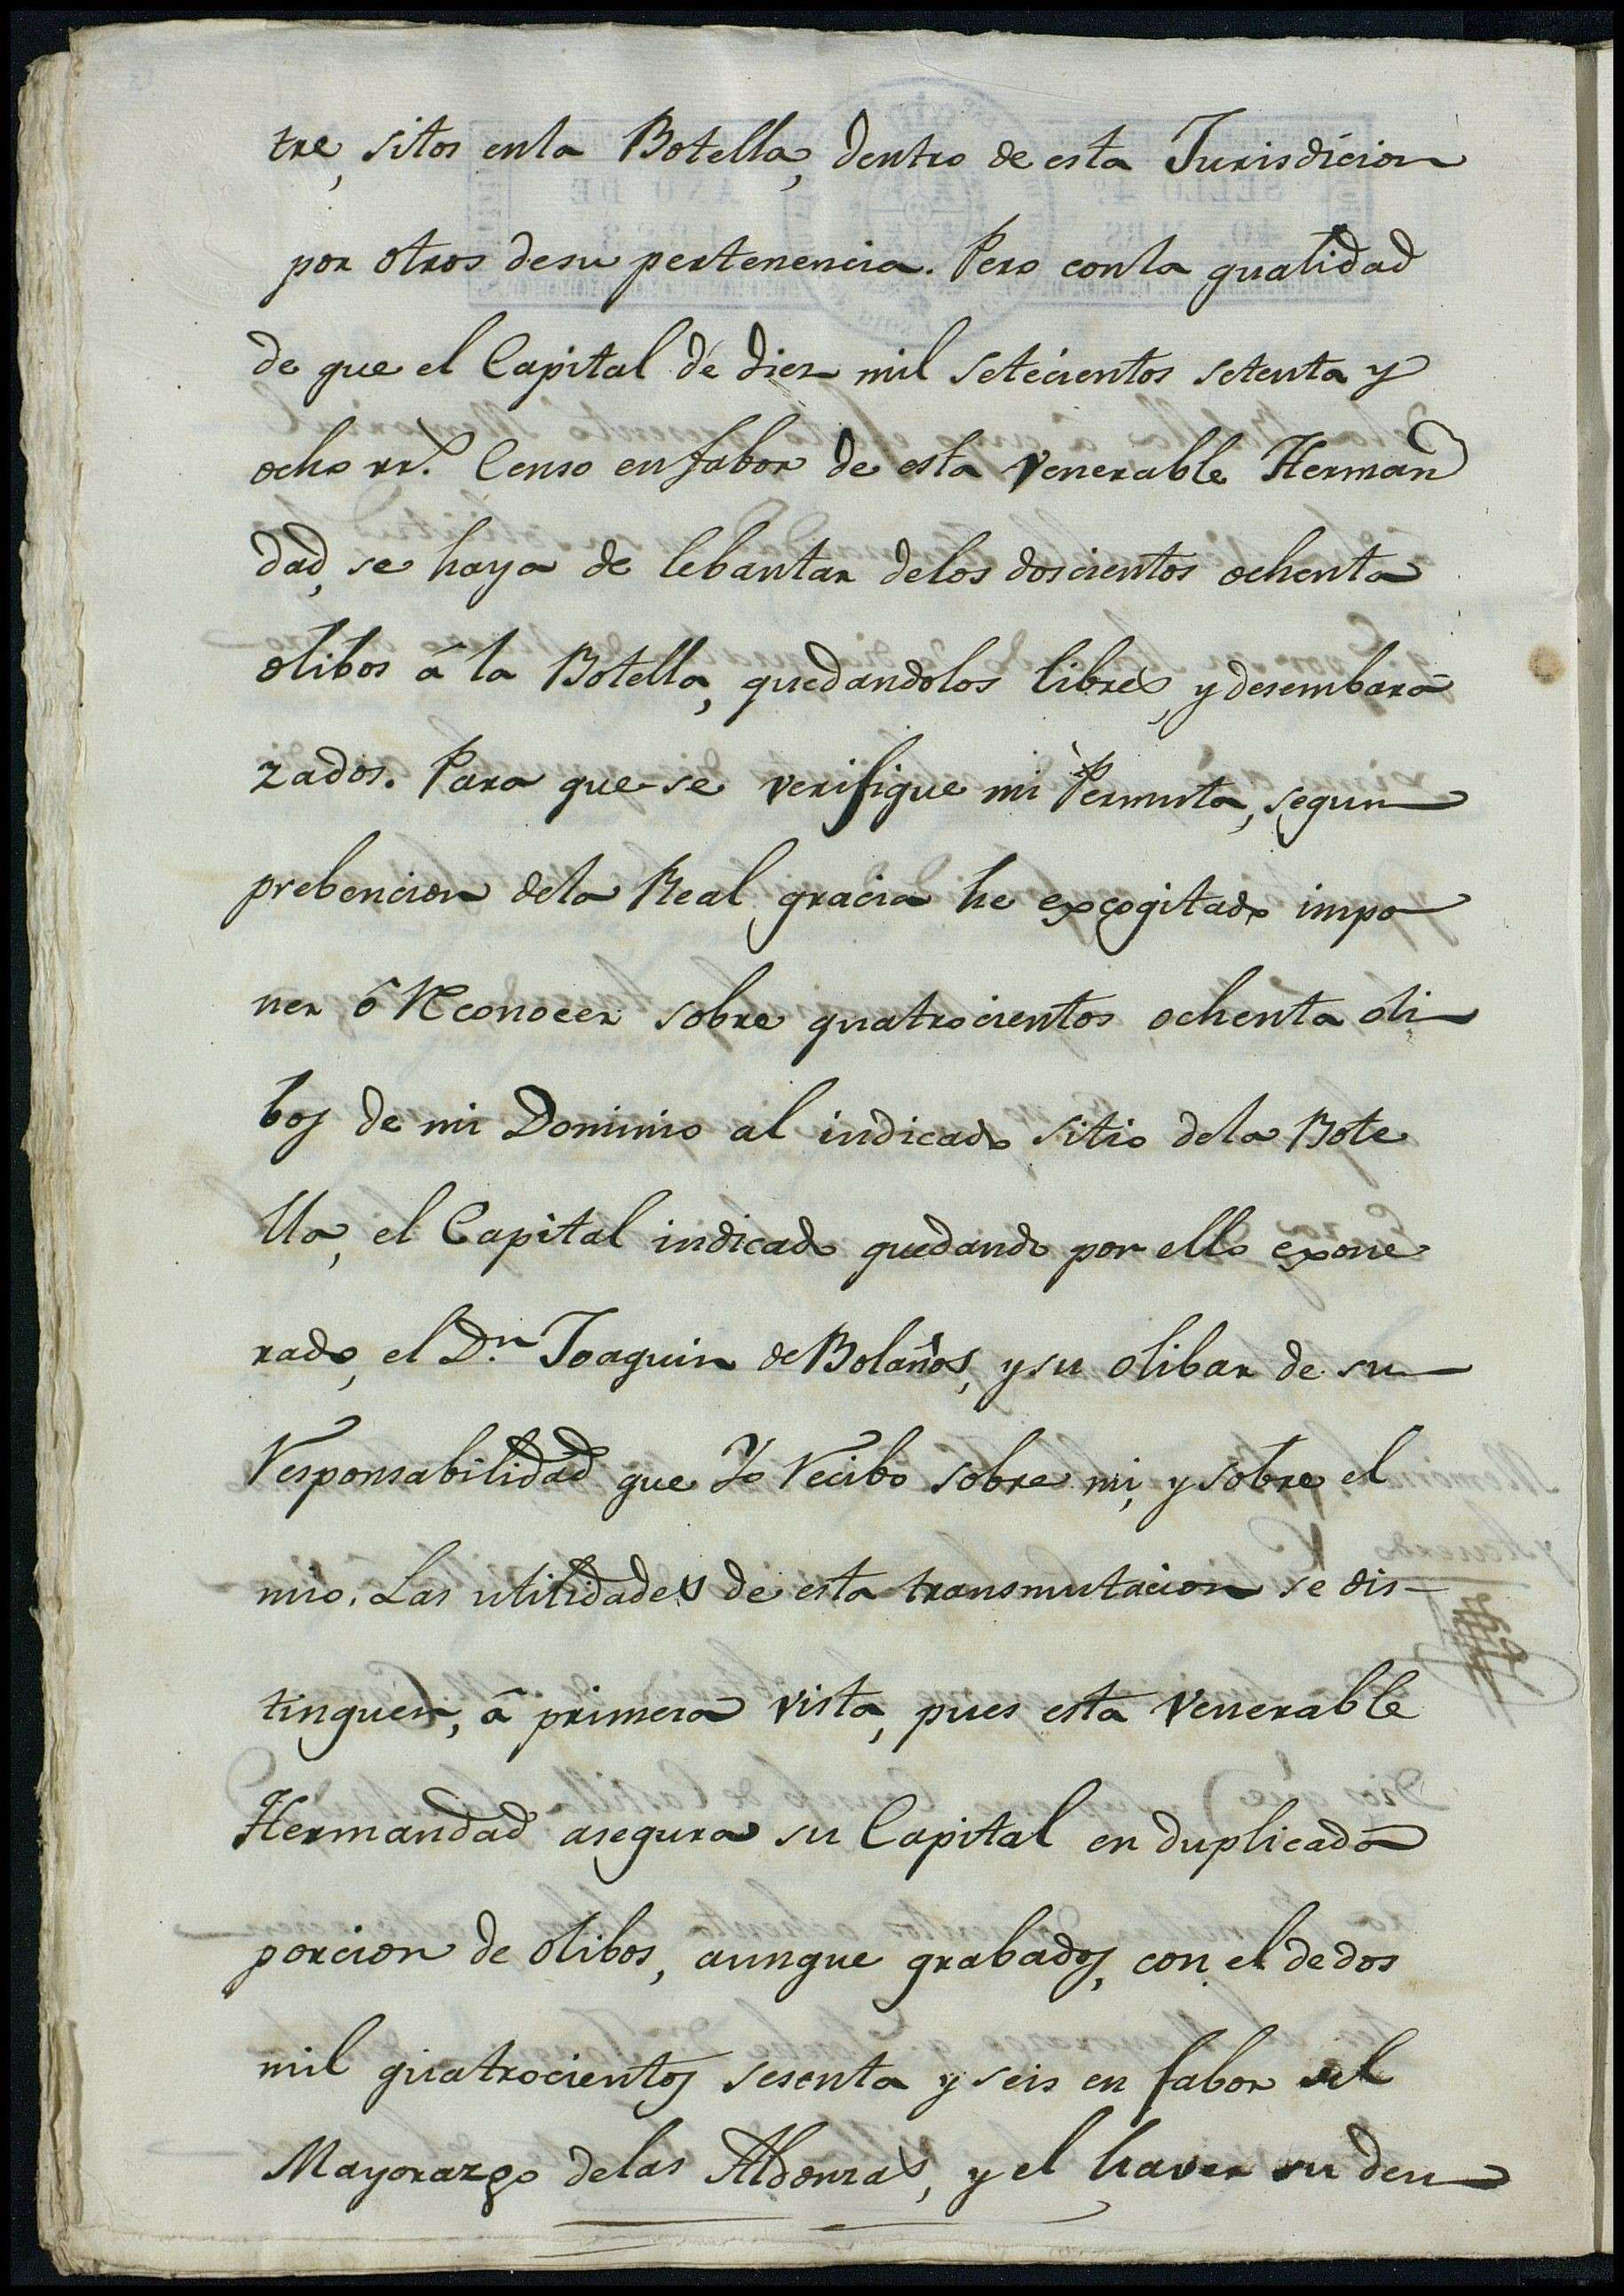 tre, sitos enla Botella, dentro de esta Jurisdicion
por otros desu pertenencia. Pero conla qualidad
de que el Capital de diez mil setecientos setenta y
ocho rr.ˢ Censo en fabor de esta Venerable Herman
dad, se haya de lebantar delos doscientos ochenta
olibos â la Botella, quedandolos libres, y desembara
zados. Para que se verifique mi Permuta, segun
prebencion dela Real gracia he excogitado impo
ner ô Reconocer sobre quatrocientos ochenta oli
bos de mi Dominio al indicado sitio dela Bote
lla, el Capital indicado quedando por ello exone
rado, el D.ⁿ Joaquin de Bolaños, y su olibar de su
Responsabilidad que Yo Recibo sobre mi, y sobre el
mio. Las utilidades de esta transmutacion se dis-
tinguen, â primera vista, pues esta Venerable
Hermandad asegura su Capital en duplicada
porcion de olibos, aunque grabados, con el de dos
mil quatrocientos sesenta y seis en fabor del
Mayorazgo delas Aldonzas, y el haver su den